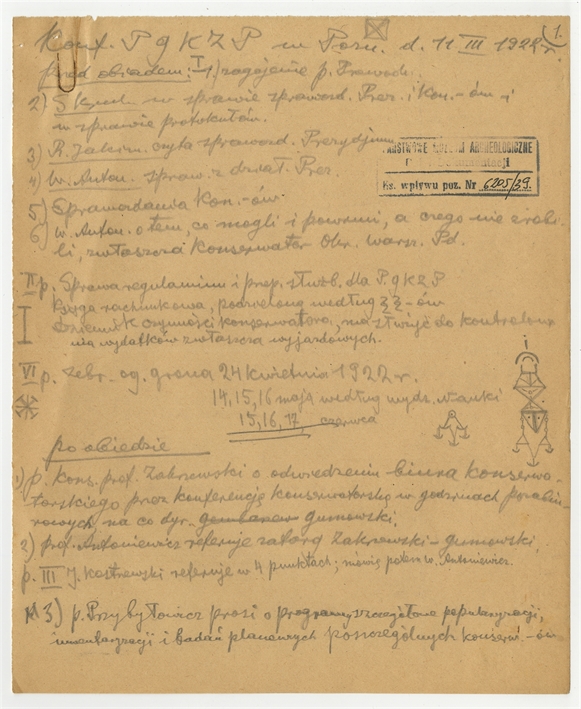 Konf. P g K Z P w Pozn. d. 11 III 1922 r. 1.
przed obiadem: I 1) zagajenie p. Przewodn.
2) w sprawie sprawozd. Prez. i Kon.-ów i
w sprawie protokułów.
3) R. Jakim. czyta sprawozd. Prezydjum
4) W. Anton. spraw. z dział. Prez.
PAŃSTWOWE MUZEUM ARCHEOLOGICZNE
Ks. wpływu poz. Nr 6205/39.
5) Sprawozdania Kon.-ów.
6) W. Anton. o tem, co mogli i powinni, a czego nie zrobi-
li, zwłaszcza Konserwator Okr. Warsz. Pd.
II p. Sprawa regulaminu i przep. służb. dla P g K Z P
Księga rachunkowa, podzielona według §§-ów
Dziennik czynności konserwatora, ma służyć do kontrolowa-
nia wydatków zwłaszcza wyjazdowych.
VI p. Zebr. og. grona 24 kwietnia 1922 r.
14, 15, 16 maja według wydz. nauki
15, 16, 17 czerwca
po obiedzie
1) p. Kons. prof. Zakrzewski o odwiedzeniu biura konserwa-
torskiego przez konferencję konserwatorską w godzinach
na co dyr. Gumowski.
2) prof. Antoniewicz referuje zatarg Zakrzewski - Gumowski.
p. III J. Kostrzewski referuje w 4 punktach; mówię potem W. Antoniewicz.
3) p. Przybyłowicz prosi o programy szczegółowe popularyzacji,
inwentaryzacji i badań planowych poszczególnych konserw.-ów